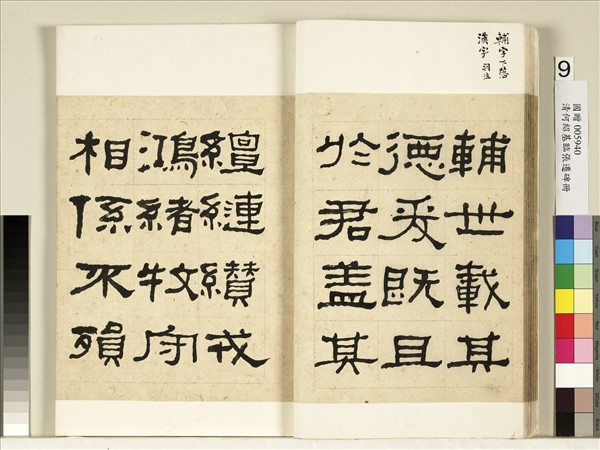 輔字下落
漢字
9
國贈 005940
清何紹基臨張遷碑冊
輔世載其
德爰既且
於君盖其
繵縺纘戎
鴻緒牧守
相係不殞